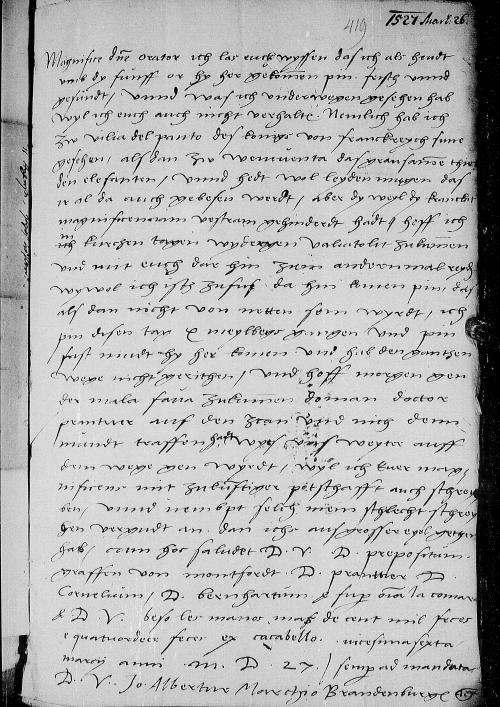 1527 Mart. 26.
419
Magnifice dne orator ich las euch wyssen das ich als heudt
umb dy funff or hy her gekumen pin frisch unnd
gesundt / unnd was ich underwegen gesehen hab
wyl ich euch auch nicht verhalte. Nemlich hab ich
zw vilia del panto des konigs von franckreych sune
gesehen / als dan zw wenuenta das grausame thier
den elefanten / unnd hedt wol leyden mugen das
ir al da auch gebesen werdt / aber dy weyl dy kranckeit
magnificenciam vestram gehinderdt hadt hoff ich
in kurczen tagen wyder gen valiatolit zu kumen
und mit euch dar hin zum andernmal reyd
wywol ich itz zu fus da hin kumen pin / das
als dan nicht von netten sein wyrdt / ich
pin disen tag x meylbegs gangen und pin
fast muedt hy her kumen und hab den ganthen
wege nicht gerithen / und hoff morgen gen
der mala fatia zu kumen doman doctor
prantner auf den und mich denn
mandt traffen hadt was uns weyter auff
dem wege gen wyrdt / wyl ich euer mag
nificens mit zukunftiger potschafft auch schrey
ben / unnd nembt solch mein schlecht schrey
ben vergudt an dan ichs aus grosser eyl gethon
hab / cum hoc saludet D. V. D. prepositum.
graffen von montfordt D. prantner D.
Cornelium / D. bernhartum et sup omia la comare
& D V. beso les manos mas de cent mil feces
e quatuordece feces ex cacabello. vicesima sexta
marcii anni . M. D. 27. / semper ad mandata
D. V. Jo Albertus Marchio Brandenburg